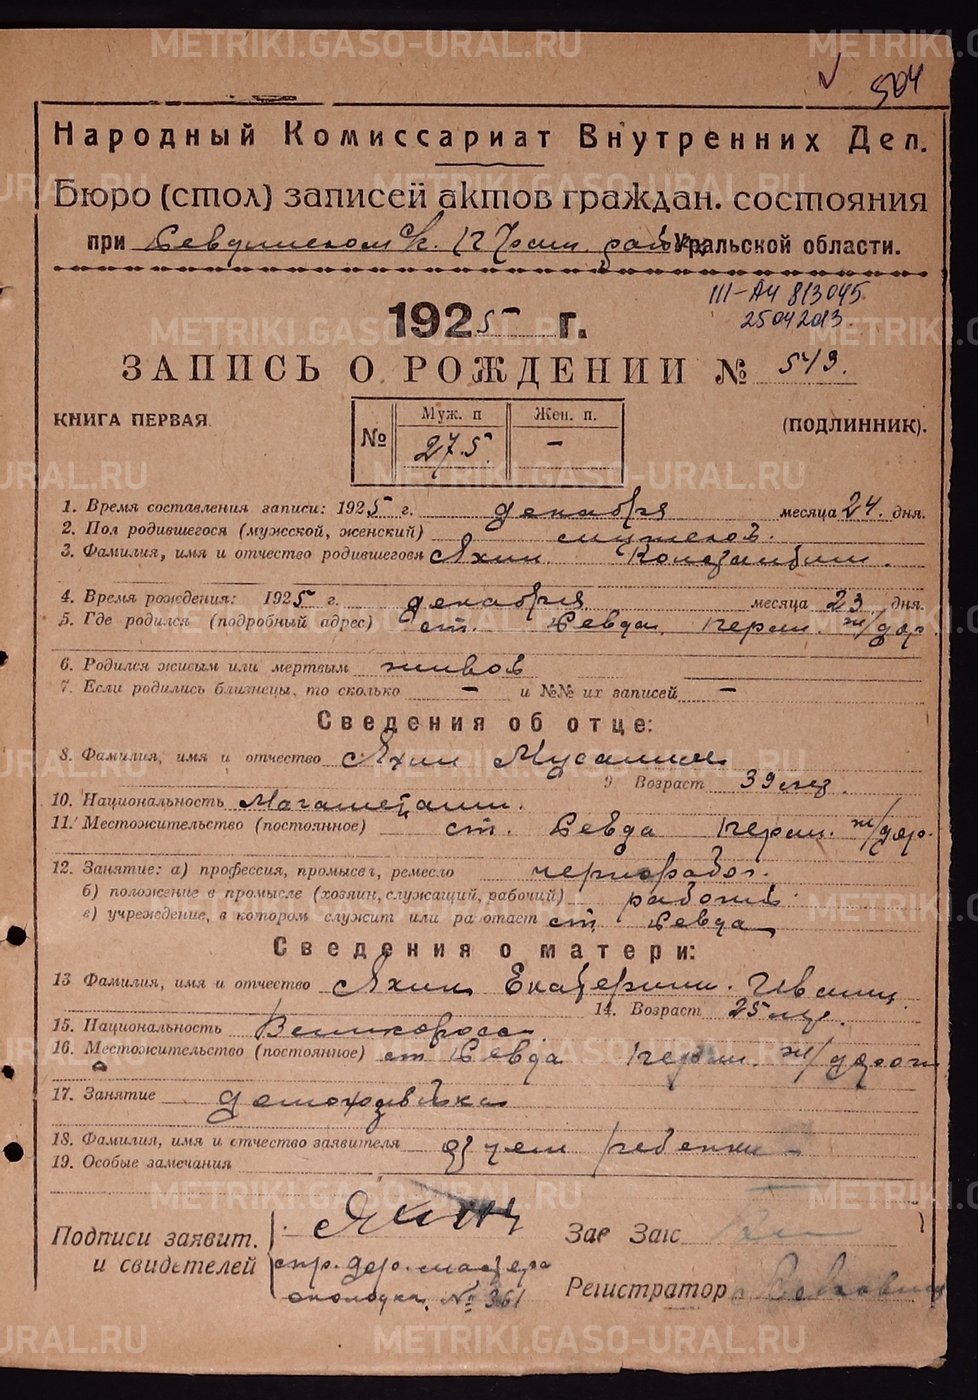 METRIKI.GASO-URAL.RU
504
Народный Комиссариат Внутренних Дел.
Бюро (стол) записей актов граждан. состояния
при Ревдинском с/с. Уральской области.
III-АИ 813045
25042013
1925 г.
ЗАПИСЬ О РОЖДЕНИИ № 519.
КНИГА ПЕРВАЯ. (ПОДЛИННИК).
№ Муж. п Жен. п.
275 -
1. Время составления записи: 1925 г. декабря месяца 24. дня.
2. Пол родившегося (мужсской, женский) мужской.
3. Фамилия, имя и отчество родившегося Яхин Константин.
4. Время рождения: 1925 г. декабря месяца 23 дня.
5. Где родился (подробный адрес) ст. Ревда, перм. ж/дор.
6. Родился живым или мертвым живой
7. Если родились близнецы, то сколько - и №№ их записей -
Сведения об отце:
8. Фамилия, имя и отчество Яхин
9 Возраст 39 лет.
10. Национальность Магаметанин.
11. Местожительство (постоянное) ст. Ревда перм. ж/дор.
12. Занятие: а) профессия, промысел, ремесло чернорабоч.
б) положение в промысле (хозяин, служащий, рабочий) рабочий.
в) учреждение, в котором служит или работает ст Ревда
Сведения о матери:
13 Фамилия, имя и отчество Яхин Екатерин. Иван
14. Возраст 25 лет.
15. Национальность Великоросс
16. Местожительство (постоянное) ст Ревда перм. ж/дорог
17. Занятие домохозяйка
18. Фамилия, имя и отчество заявителя отец ребенка
19. Особые замечания
Подписи заявит. Яхин Зав Загс
и свидетелей дор. мастера Регистратор
околодка. № 361